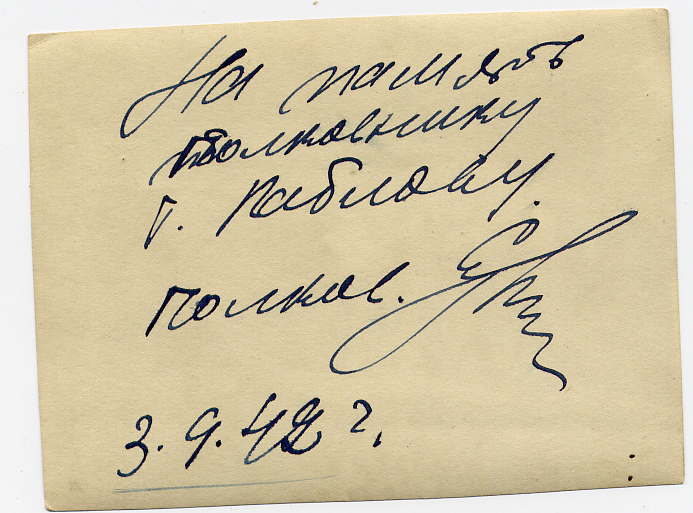 На память
полковнику
г. Павлову.
полков.
3.9.42 г.